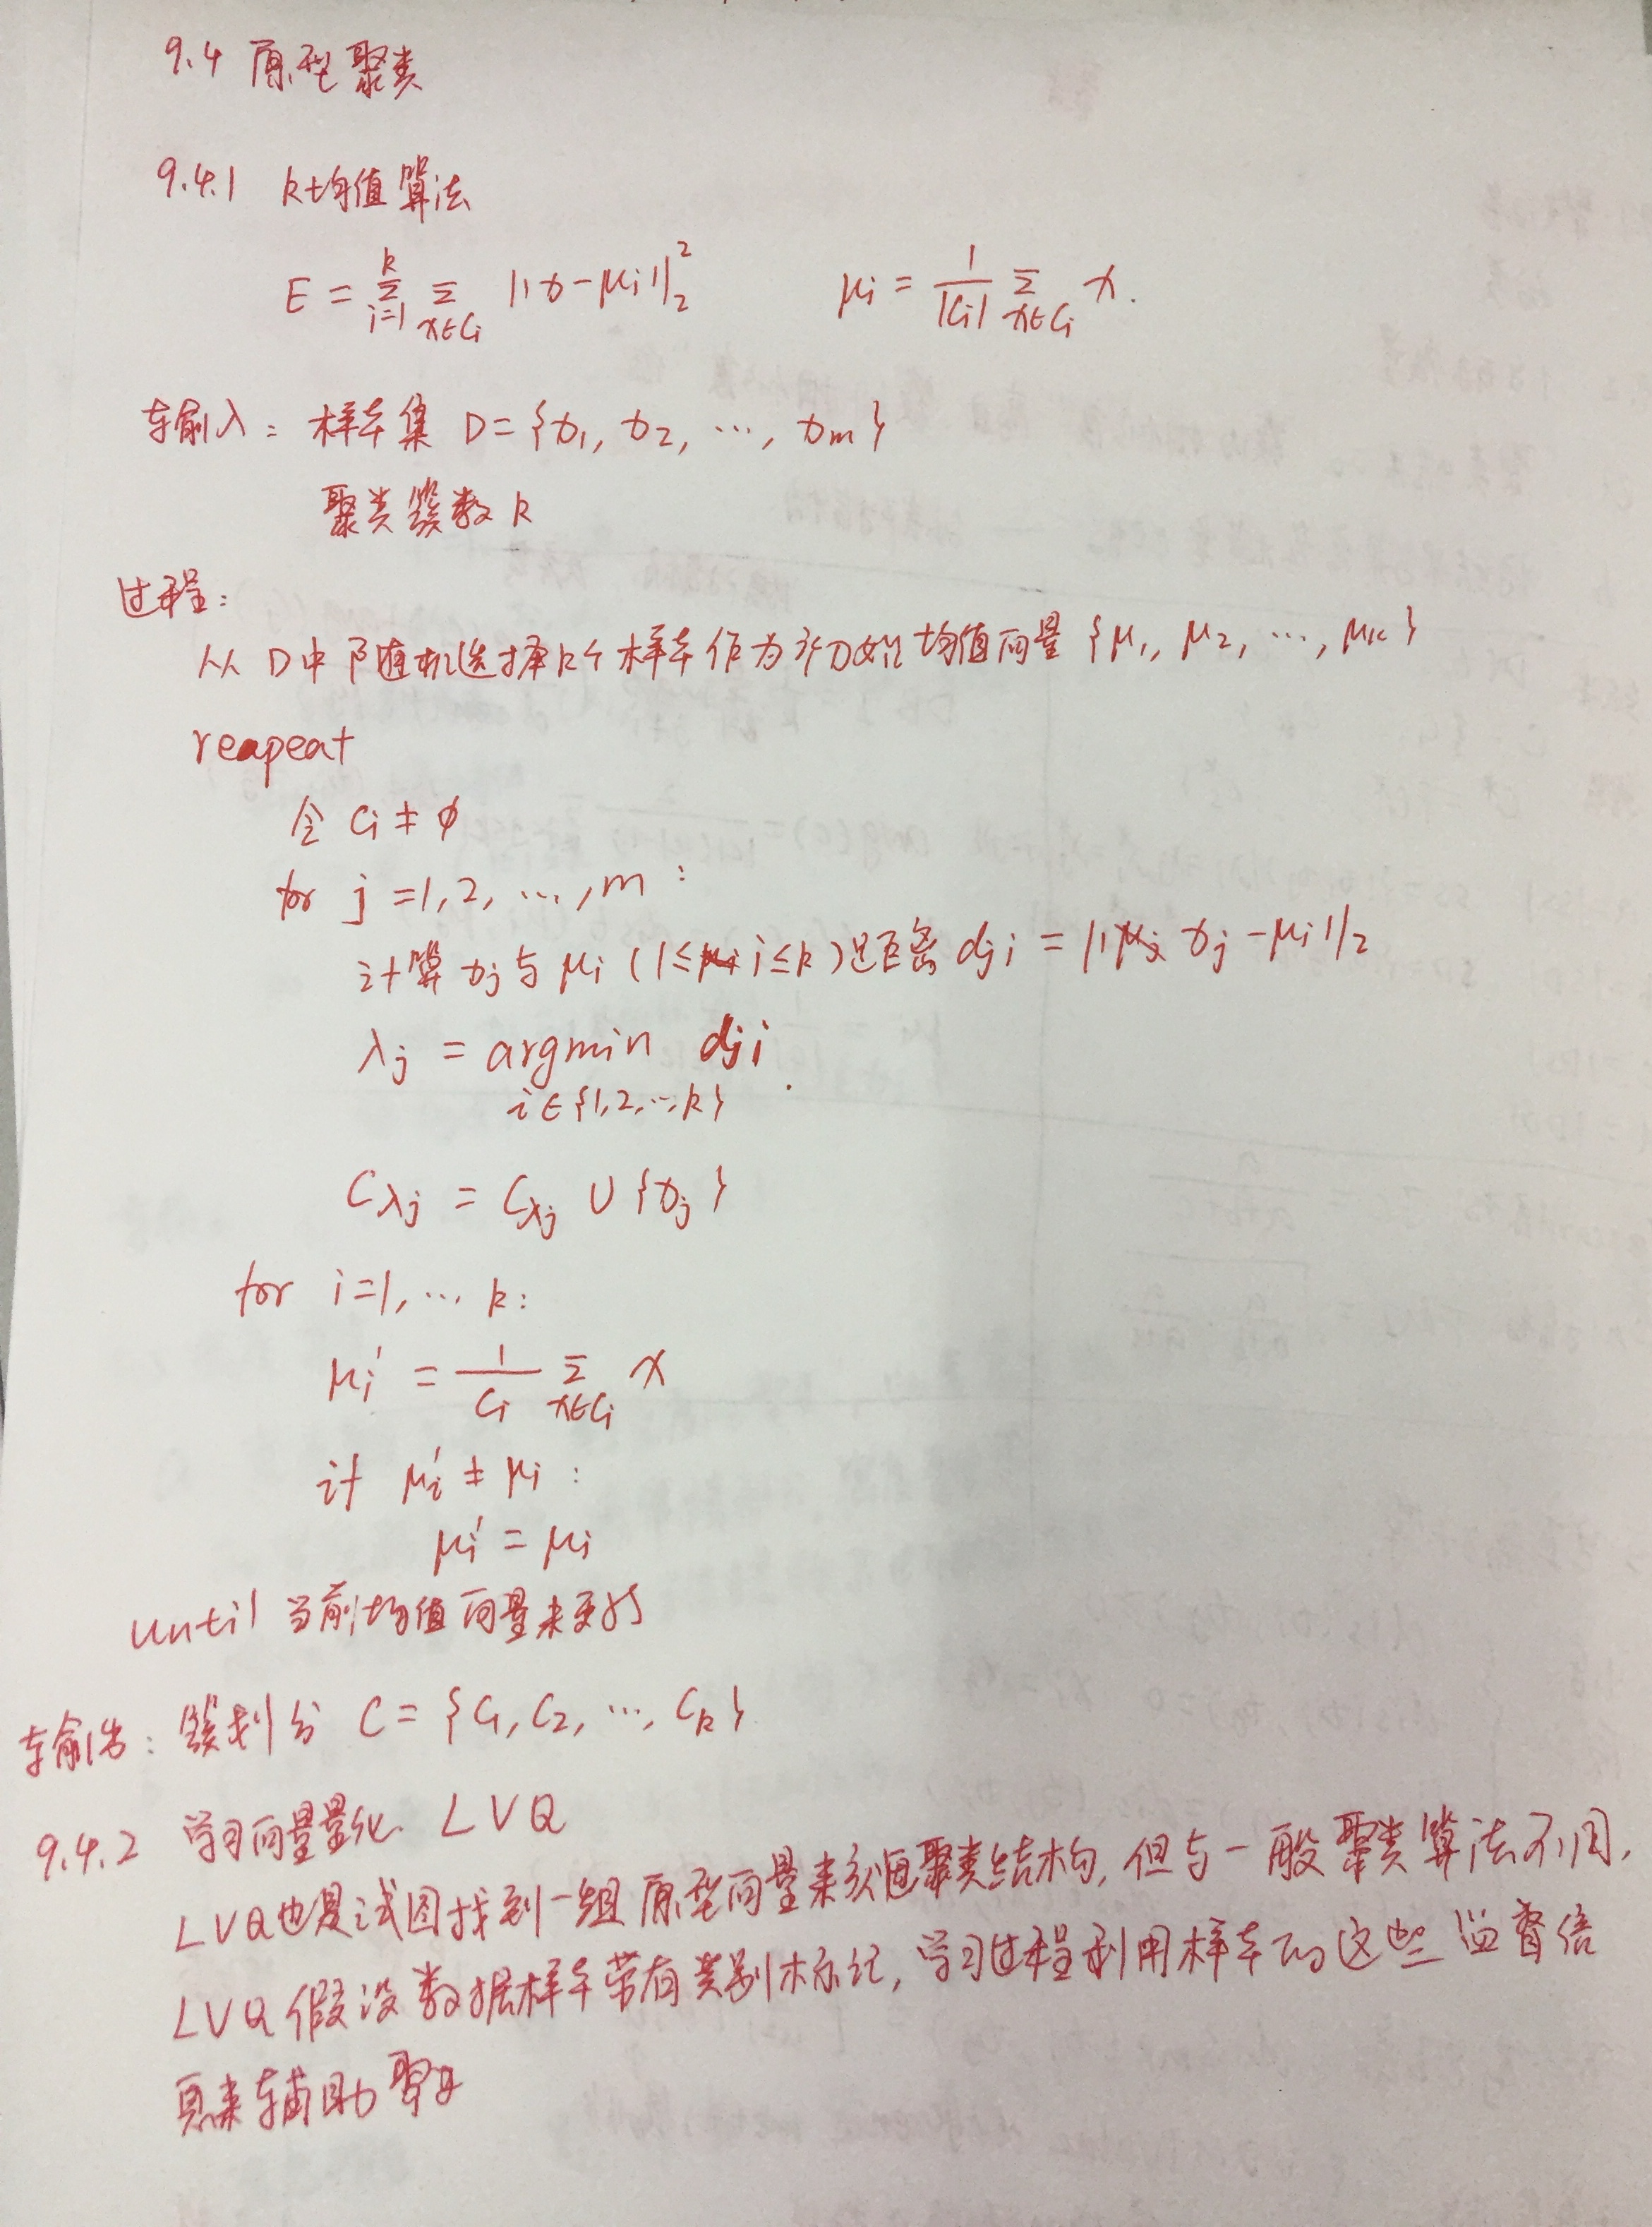 9.4 原型聚类
9.4.1 k均值算法
E = Σ_{i=1}^{k} Σ_{x∈Ci} ||x-μi||₂² μi = 1/|Ci| Σ_{x∈Ci} x.
输入: 样本集 D={x1, x2, ..., xm}
聚类簇数 k
过程:
从 D中随机选择k个样本作为初始均值向量 {μ1, μ2, ..., μk}
reapeat
令 Ci ≠ ϕ
for j =1,2, ...,m :
计算 xj 与 μi (1≤ i≤k)距离 dji = || xj -μi||2
λj = argmin dji.
i∈{1,2,...,k}
Cλj = Cλj ∪ {xj}
for i=1, ... k:
μi' = 1/Ci Σ_{x∈Ci} x
计 μi' ≠ μi :
μi' = μi
until 当前均值向量未更新
输出: 簇划分 C= {C1, C2, ..., Ck}
9.4.2 学习向量量化 LVQ
LVQ也是试图找到一组原型向量来刻画聚类结构, 但与一般聚类算法不同,
LVQ 假设数据样本带有类别标记, 学习过程利用样本的这些监督信
息来辅助聚